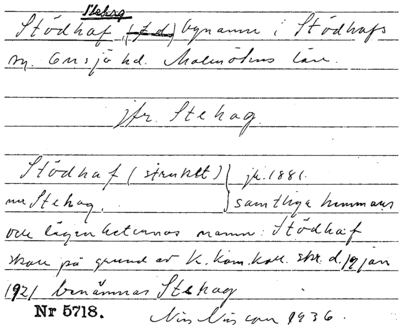 Stehag
Stödhaf, bynamn i Stödhafs
sn. Onsjö hd. Malmöhus län.
jfr. Stehag.
Stödhaf (struket) } jb. 1881.
nu Stehag. } samtliga hemmans
och lägenheternas namn: Stödhaf
skall på grund av K. kam. koll. skr. d. 19 jan
1921 benämnas Stehag
Nr 5718. Nils Nilsson 1936.